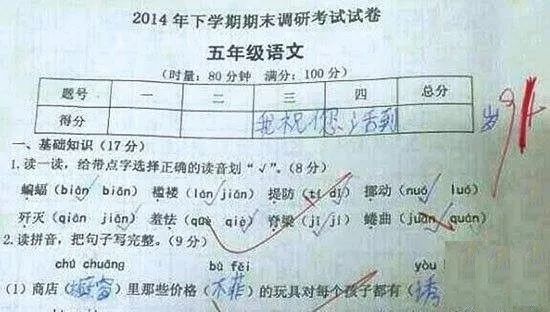 2014年下学期期末调研考试试卷
五年级语文
（时量：80分钟 满分：100分）
题号 一 二 三 四 总分
得分 我祝你活到 94 岁
一、基础知识（17分）
1.读一读，给带点字选择正确的读音划“√”。（8分）
蝙蝠（biǎn biān） 褴褛（lán jiān） 提防（tí dī） 挪动（nuó luó）
歼灭（qiān jiān） 羞怯（què qiè） 脊梁（jǐ jí） 蜷曲（juǎn quán）
2.读拼音，把句子写完整。（9分）
chú chuāng bù fěi yòu
（1）商店（橱窗）里那些价格（不菲）的玩具对每个孩子都有（诱